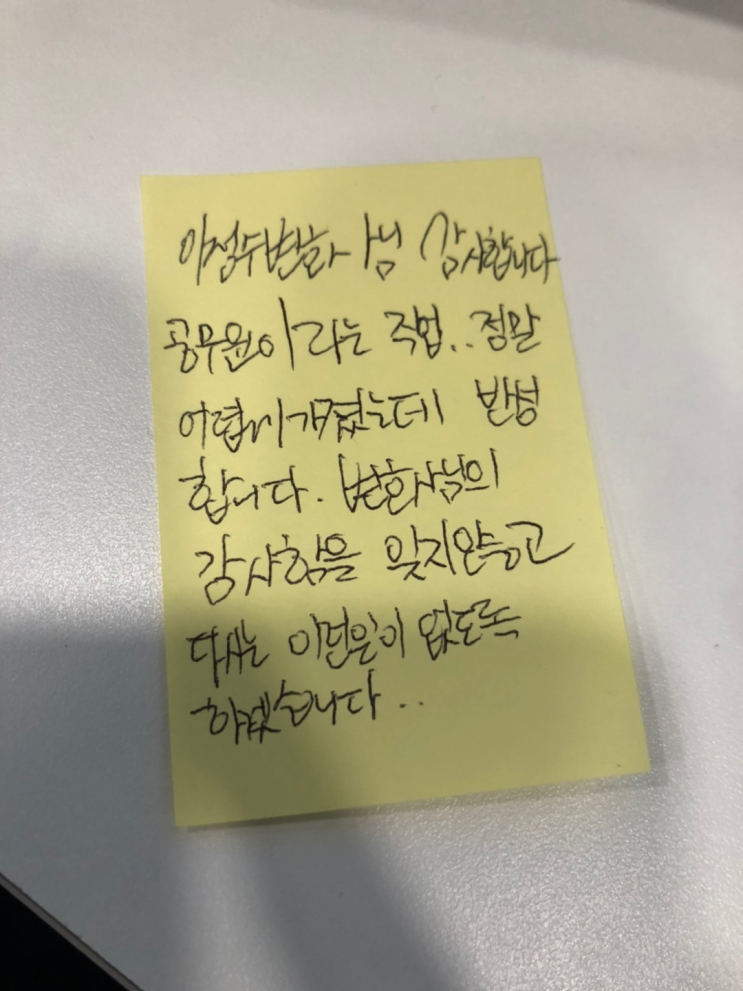 이정수변호사님 감사합니다
공무원이라는 직업.. 정말
어렵게개졌는데 반성
합니다. 변호사님의
감사함을 잊지안능고
다시는 이런일이 없도록
하겠습니다..